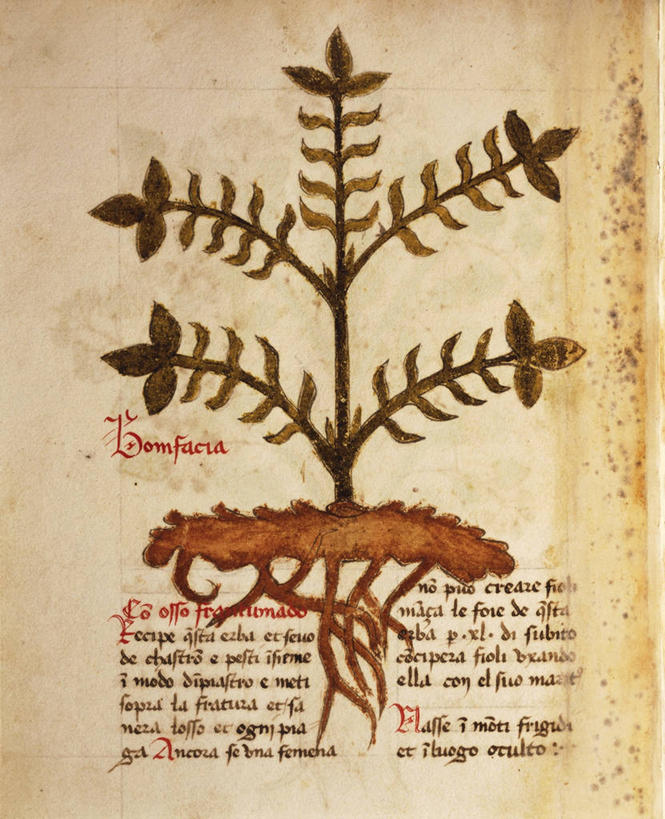 Bomfacia
Cõ osso frantumado
Recipe q̃sta erba et seuo
de chastrõ e pesti ĩsieme
ĩ modo dĩpiastro e meti
sopra la fratura et sa
nera losso et ogni pia
ga Ancora se vna femena
nõ può creare fioli
mãça le foie de q̃sta
erba p. xl. di subito
cõcipera fioli vxando
ella con el suo marit
Nasse ĩ mõti frigidi
et ĩ luogo oculto :